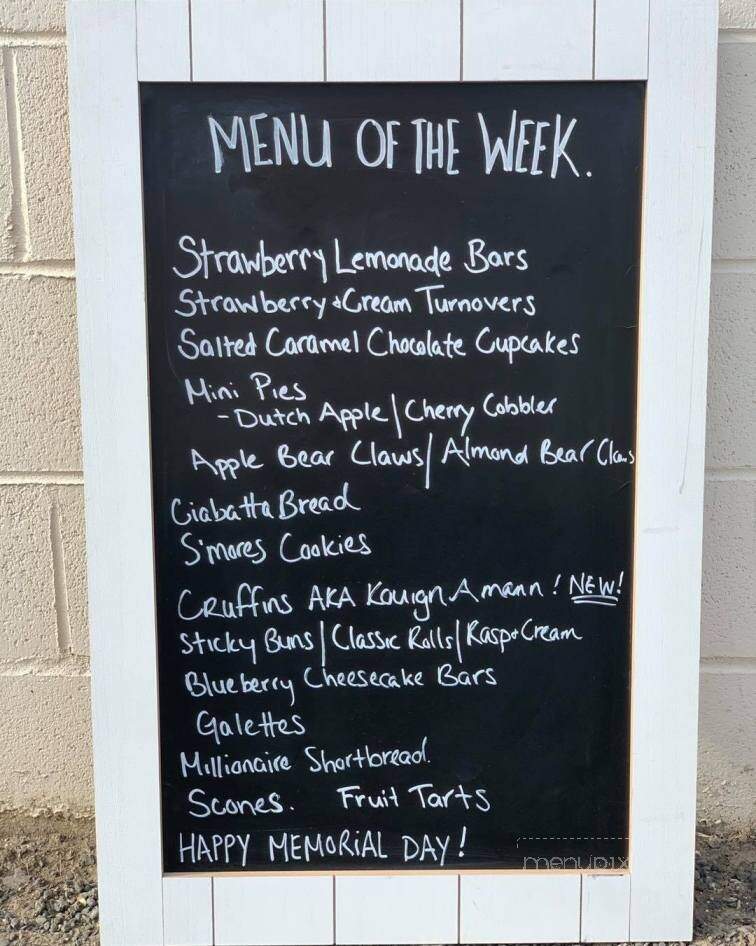 MENU OF THE WEEK.
Strawberry Lemonade Bars
Strawberry + Cream Turnovers
Salted Caramel Chocolate Cupcakes
Mini Pies
- Dutch Apple | Cherry Cobbler
Apple Bear Claws | Almond Bear Claws
Ciabatta Bread
S'mores Cookies
CRuffins AKA Kouign Amann! NEW!
Sticky Buns | Classic Rolls | Rasp + Cream
Blueberry Cheesecake Bars
Galettes
Millionaire Shortbread.
Scones. Fruit Tarts
HAPPY MEMORIAL DAY!
menupix